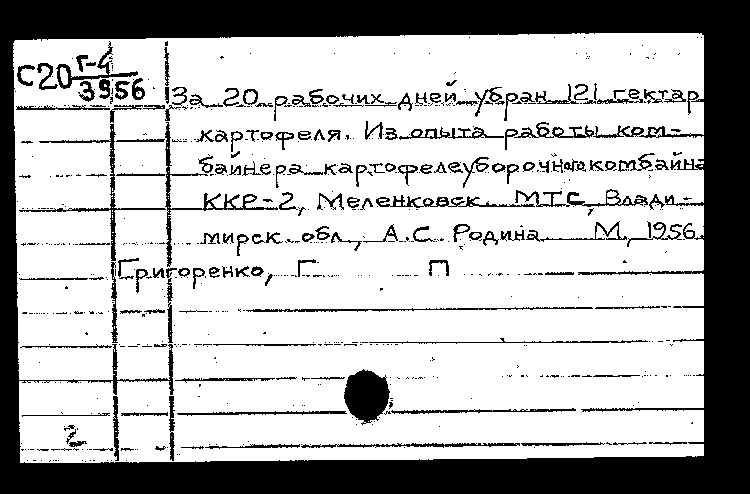 С20 Г-4
3956
За 20 рабочих дней убран 121 гектар
картофеля. Из опыта работы ком-
байнера картофелеуборочного комбайна
ККР-2, Меленковск. МТС, Влади-
мирск. обл., А.С. Родина М., 1956.
Григоренко, Г П
2